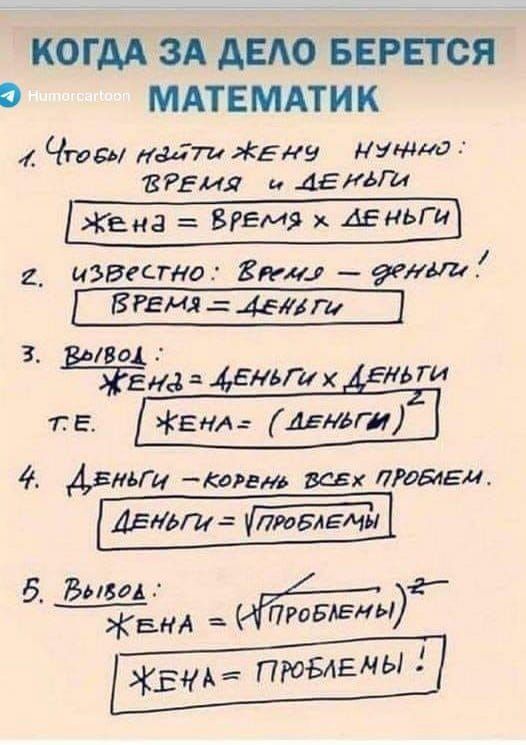 КОГДА ЗА ДЕЛО БЕРЕТСЯ
Humorcartoon
МАТЕМАТИК
1. Чтобы найти жену нужно:
ВРЕМЯ и ДЕНЬГИ
Жена = ВРЕМЯ x ДЕНЬГИ
2. ИЗВЕСТНО: Время – деньги!
ВРЕМЯ = ДЕНЬГИ
3. ВЫВОД:
ЖЕНА = ДЕНЬГИ x ДЕНЬГИ
Т.Е. ЖЕНА = (ДЕНЬГИ)²
4. ДЕНЬГИ – КОРЕНЬ ВСЕХ ПРОБЛЕМ.
ДЕНЬГИ = √ПРОБЛЕМЫ
5. ВЫВОД:
ЖЕНА = (√ПРОБЛЕМЫ)²
ЖЕНА = ПРОБЛЕМЫ!